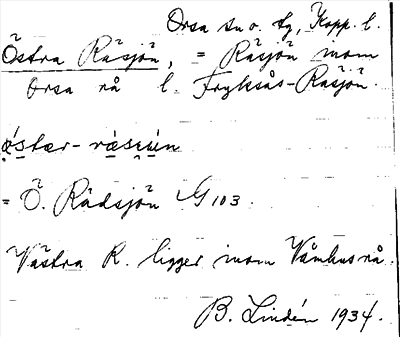 Orsa sn o. tg, Kopp. l.
Östra Räsjön, = Räsjön inom
Orsa rå l. Fryksås-Räsjön.
ǿstær-rǽsiún
= Ö. Rädsjön G 103.
Västra R. ligger inom Våmhusrå.
B. Lindén 1934.